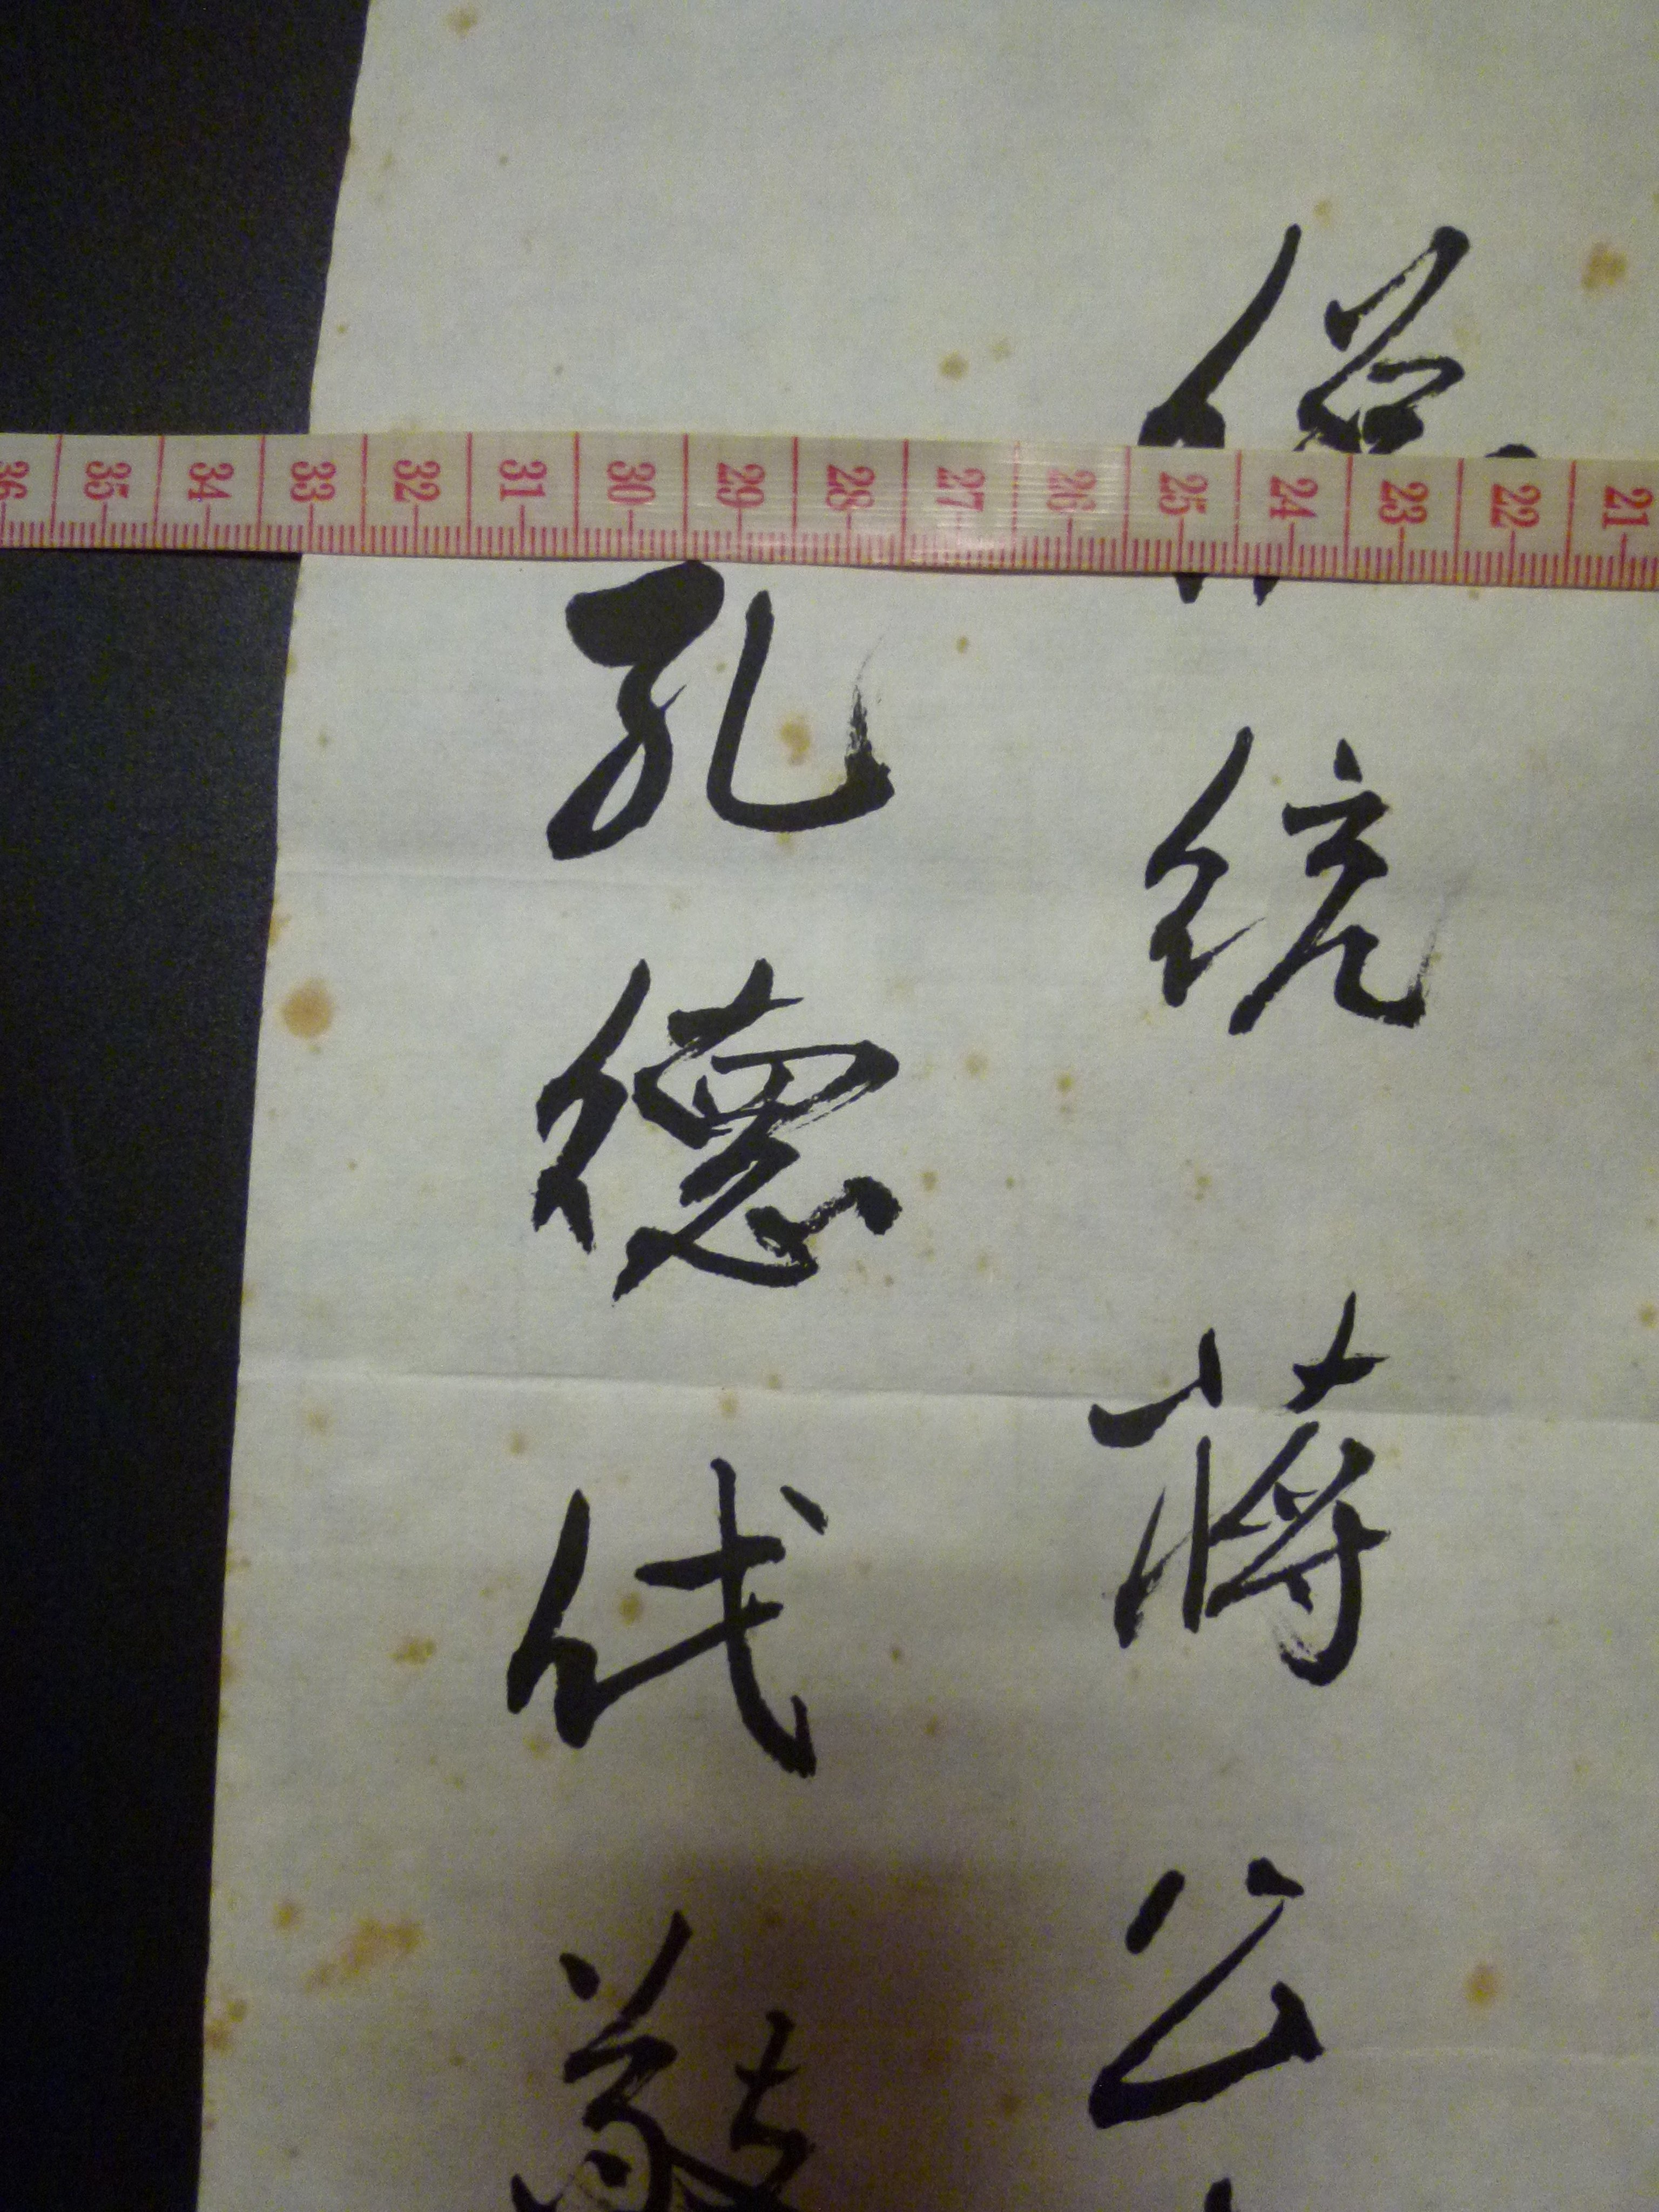 統蔣公
孔德代敬
36 35 34 33 32 31 30 29 28 27 26 25 24 23 22 21